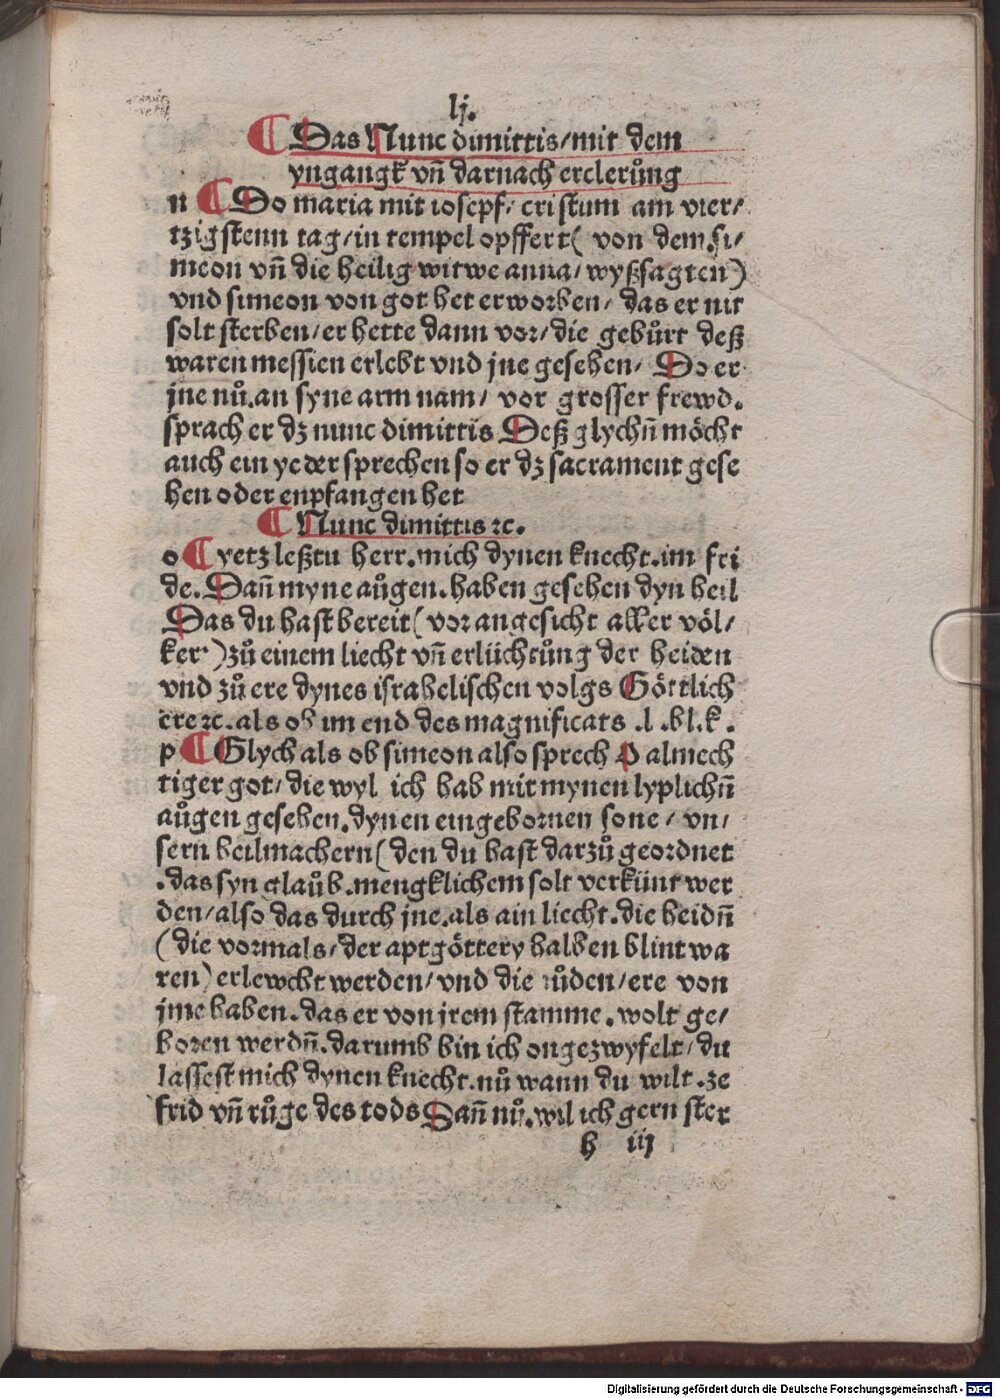 lj.
¶ Das Nunc dimittis/mit dem
yngangk vn̄ darnach erclerůng
n ¶ Do maria mit iosepf/ cristum am vier/
tzigstenn tag/in tempel opffert( von dem.si/
meon vn̄ die heilig witwe anna/wyßsagten)
vnd simeon von got het erworben/ das er nit
solt sterben/er hette dann vor/die gebůrt deß
waren messien erlebt vnd jne gesehen/ Do er
jne nů.an syne arm nam/ vor grosser frewd.
sprach er dz nunc dimittis Deß glychn̄ möcht
auch ein yeder sprechen so er dz sacrament gese
hen oder enpfangen het
¶ Nunc dimittis ꝛc.
o ¶ yetz leßtu herr.mich dynen knecht.im fri
de. Dan̄ myne aůgen.haben gesehen dyn heil
Das du hast bereit(vor angesicht aller völ/
ker)zů einem liecht vn̄ erlüchtůng der heiden
vnd zů ere dynes israhelischen volgs Göttlich
ere ꝛc.als ob im end des magnificats .l .bl.k .
p ¶ Glych als ob simeon also sprech O almech
tiger got/die wyl ich hab mit mynen lyplichn̄
aůgen gesehen.dynen eingebornen sone/ vn/
sern heilmachern(den du hast darzů geordnet
.das syn glaůb.mengklichem solt verkünt wer
den/also das durch jne.als ain liecht.die heidn̄
(die vormals/der aptgöttery halben blint wa
ren)erlewcht werden/vnd die iůden/ere von
jme haben.das er von jrem stamme.wolt ge/
boren werdn̄.darumb bin ich ongezwyfelt/du
lassest mich dynen knecht.nů wann du wilt.ze
frid vn̄ růge des tods Dan̄ nů.wil ich gern ster
h iij
Digitalisierung gefördert durch die Deutsche Forschungsgemeinschaft - DFG